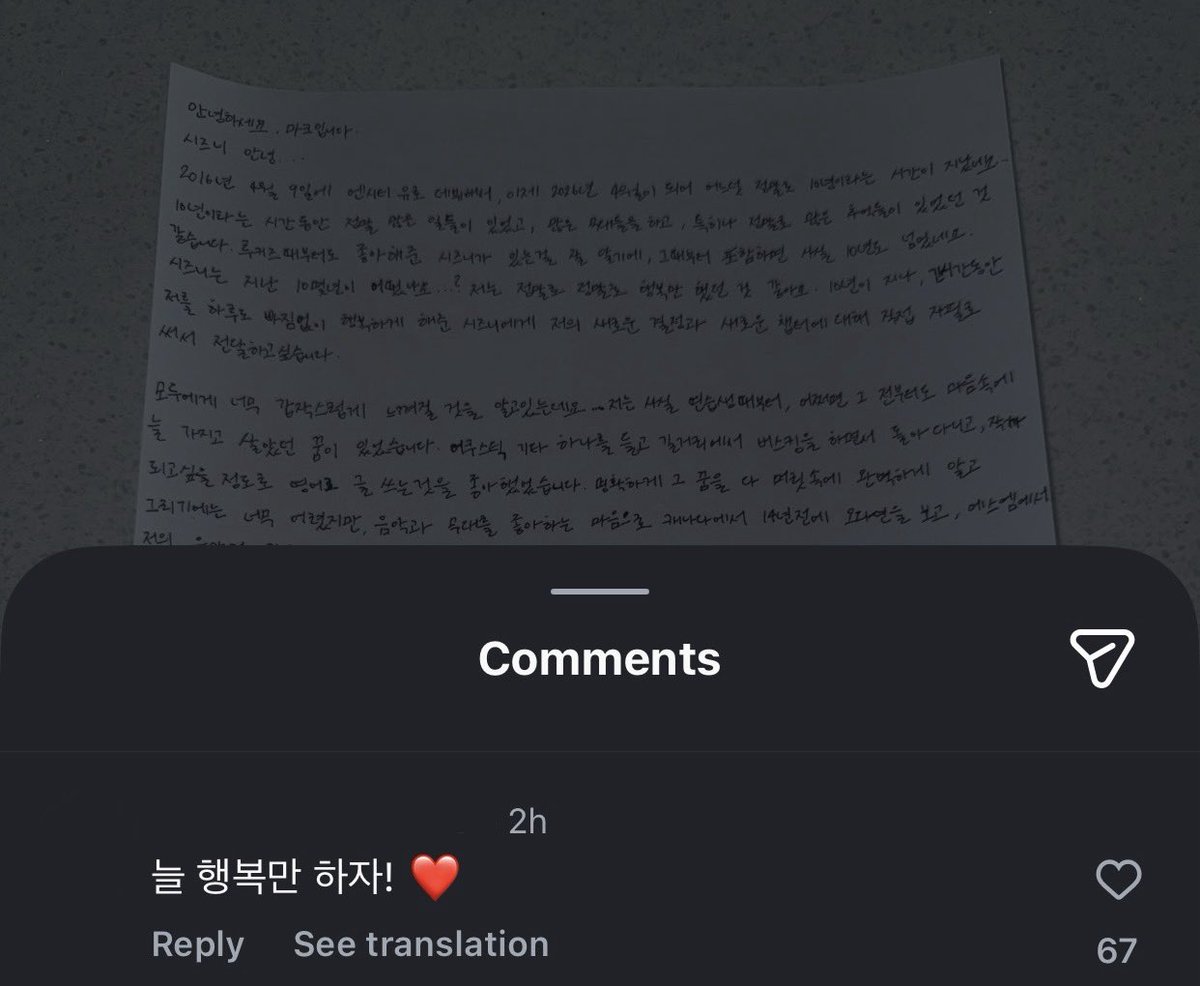 안녕하세요. 마크입니다.
시즈니 안녕...
2016년 4월 9일에 엔시티 유로 데뷔해서, 이제 2026년 4월이 되어 어느덧 정말로 10년이라는 시간이 지났네요..
10년이라는 시간동안 정말 많은 일들이 있었고, 많은 하고, 특히나 정말로 많은 추억들이 있었던 것
같습니다. 루키즈때부터도 좋아해준 시즈니가 있는걸 잘 알기에, 그때부터 포함하면 사실 10년도 넘었네요.
시즈니는 지난 10몇년이 어땠나요...? 저는 정말로 정말로 행복만 했던 것 같아요. 10년이 지나, 긴시간동안
저를 하루도 빠짐없이 행복하게 해준 시즈니에게 저의 새로운 결정과 새로운 챕터에 대해 직접 자필로
써서 전달하고싶습니다.
모두에게 너무 갑작스럽게 느껴질 것을 알고있는데요... 저는 사실 연습생때부터, 어쩌면 그 전부터도 마음속에
늘 가지고 살았던 꿈이 있었습니다. 어쿠스틱 기타 하나를 들고 길거리에서 버스킹을 하면서 돌아다니고,
되고싶을 정도로 영어로 글 쓰는것을 좋아했었습니다. 명확하게 그 꿈을 다 머릿속에 완벽하게 알고
그리기에는 너무 어렸지만, 음악과 무대를 좋아하는 마음으로 캐나다에서 14년전에 오디션을 보고, 에스엠에서
저의
Comments
2h
늘 행복만 하자! ❤️
Reply See translation
67